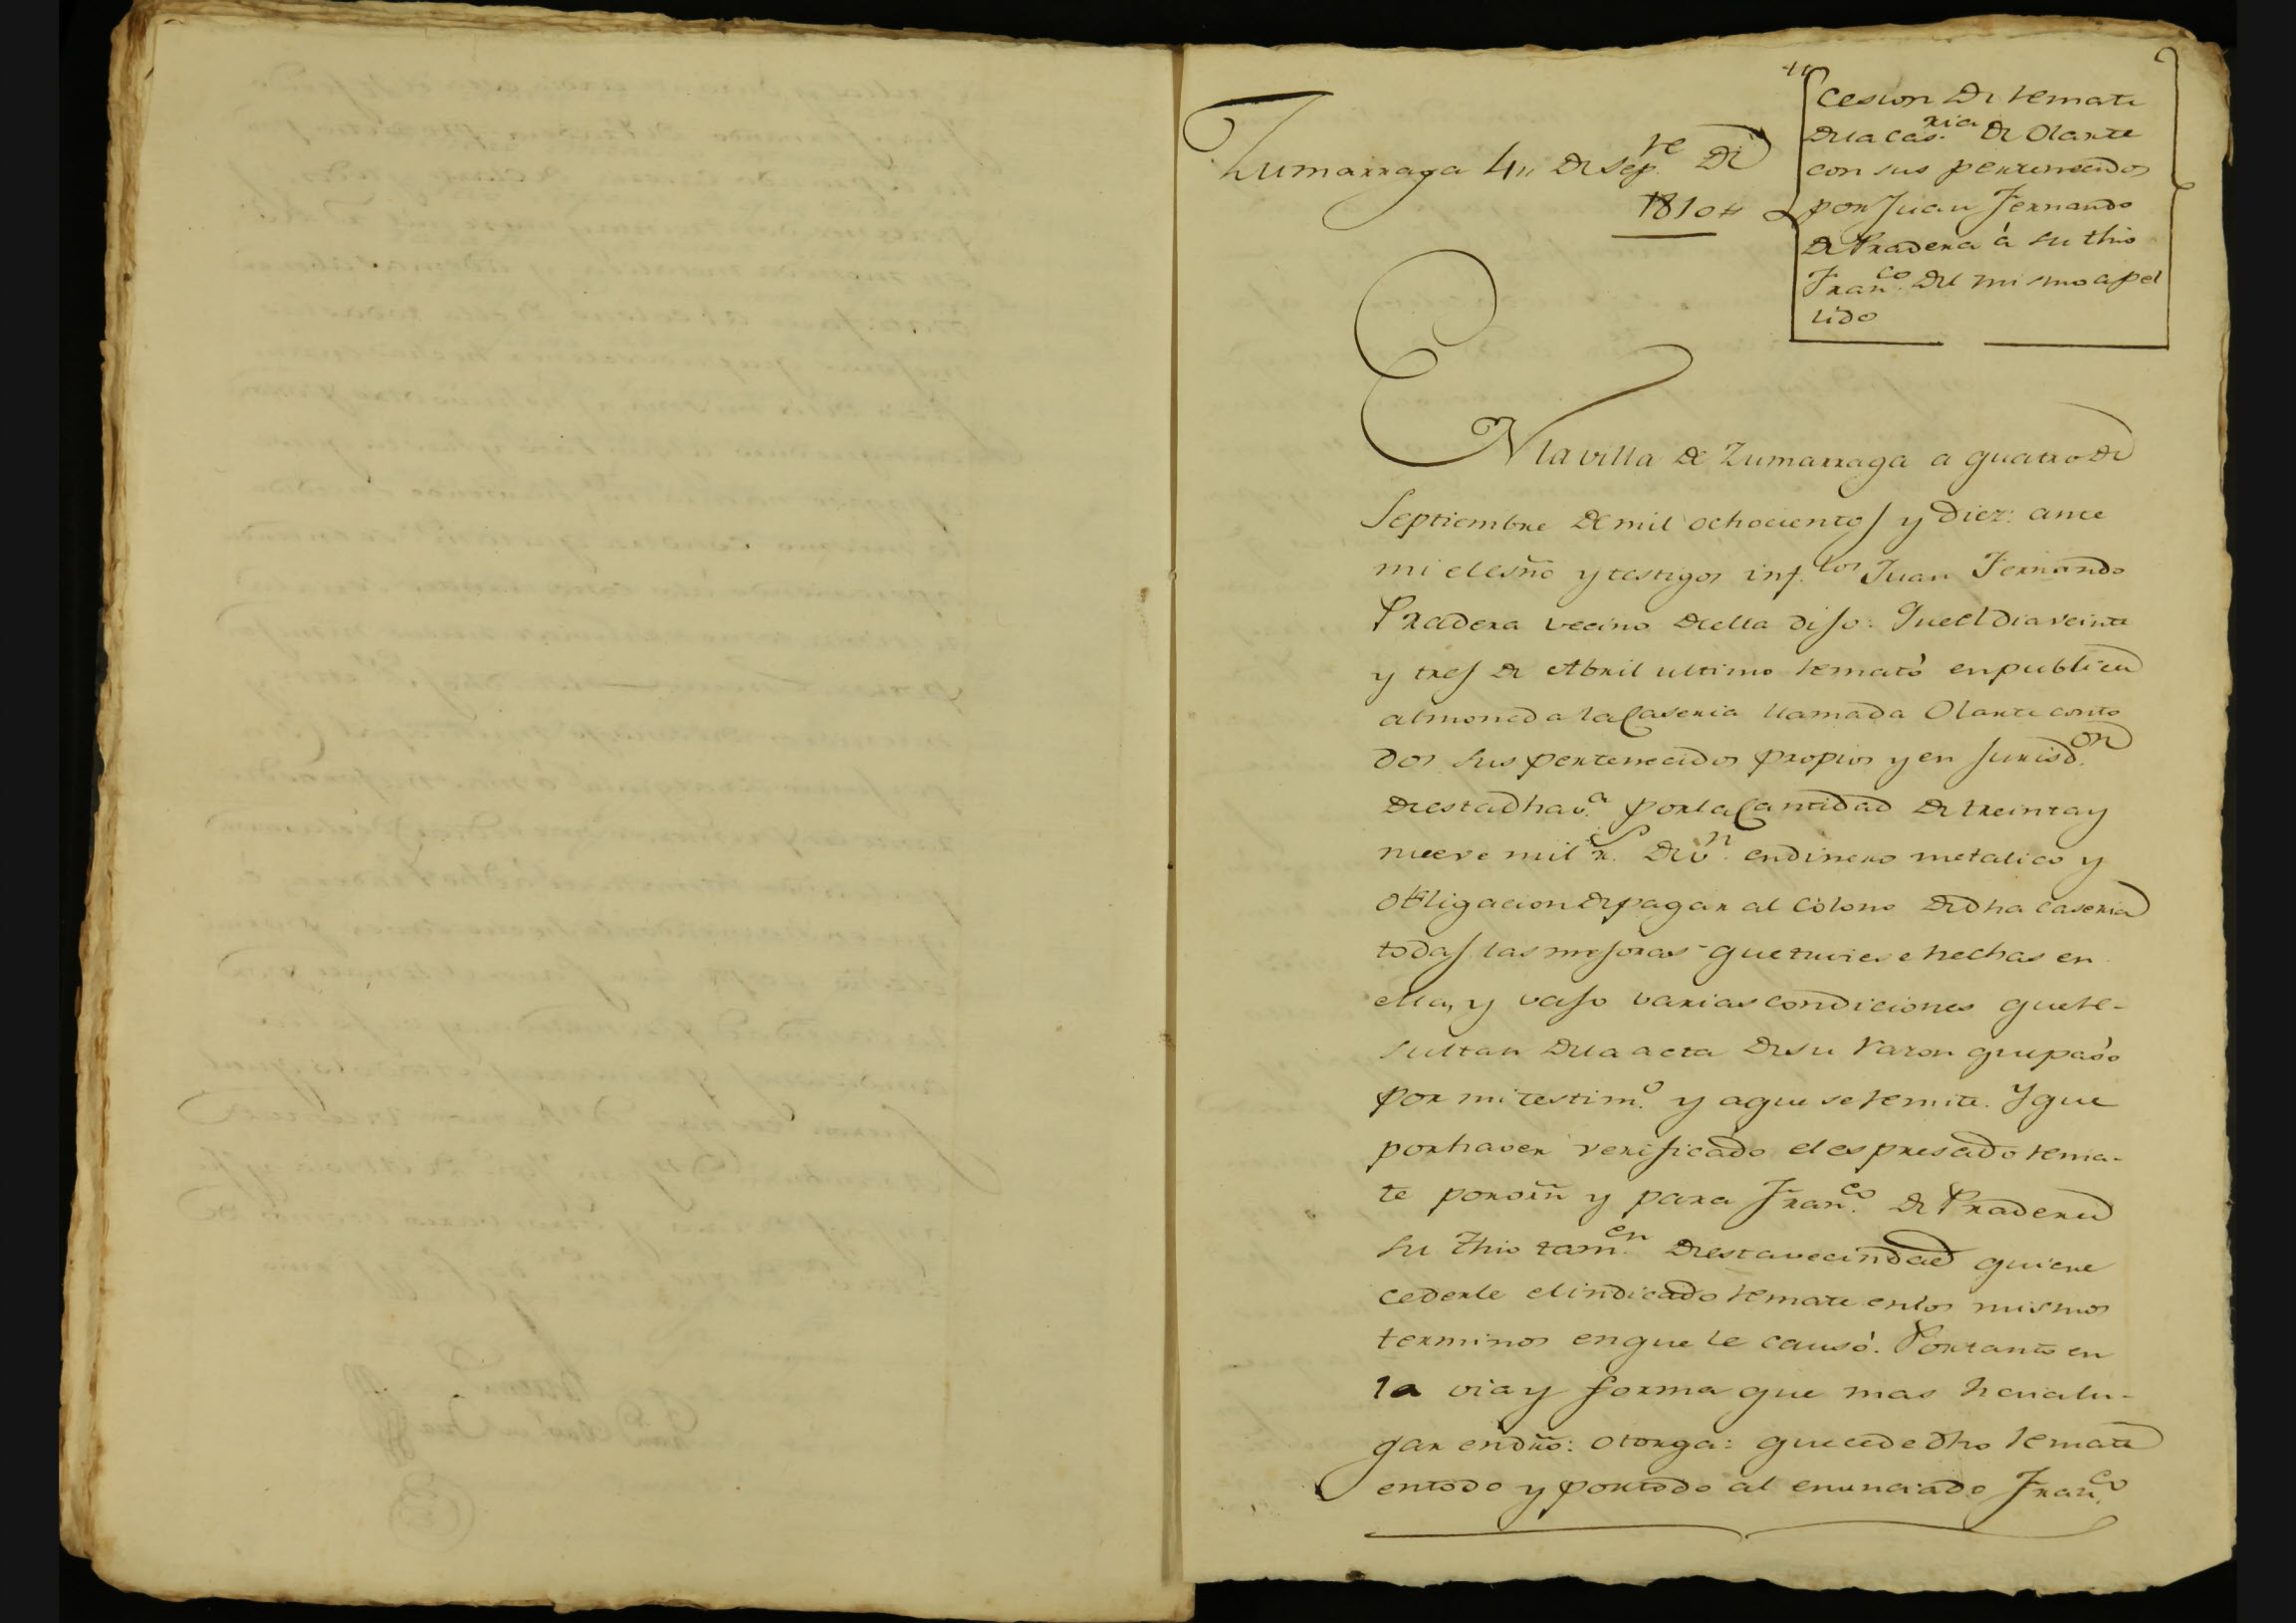 Zumarraga 4,, de Sep.te de
1810,,
Cesion de remate
de la cas.ria de Olarte
con sus pertenecidos
por Juan Fernando
de Pradera á su thio
Fran.co del mismo apel
lido
EN la villa de Zumarraga a quatro de
Septiembre de mil ochocientos y diez: ante
mi el esño y testigos inf.tos Juan Fernando
Pradera vecino de ella dijo: Que el dia veinte
y tres de Abril ultimo remató en publica
almoneda la Caseria llamada Olarte con to
dos sus pertenecidos propios y en jurisd.on
de esta dha v.a por la Cantidad de treinta y
nueve mil r.s de v.n en dinero metalico y
obligacion de pagar al Colono de dha caseria
todas las mejoras que tuviese hechas en
ella, y vajo varias condiciones que re-
sultan de la acta de su razon que pasó
por mi testim.o y a que se remite. Y que
por haver verificado el espresado rema-
te por orñ y para Fran.co de Pradera
su thio tam.en de esta vecindad quiere
cederle el indicado remate en los mismos
terminos en que le causó. Por tanto en
la via y forma que mas haia lu-
gar en dño: otorga: que cede dho remate
en todo y por todo al enunciado Fran.co